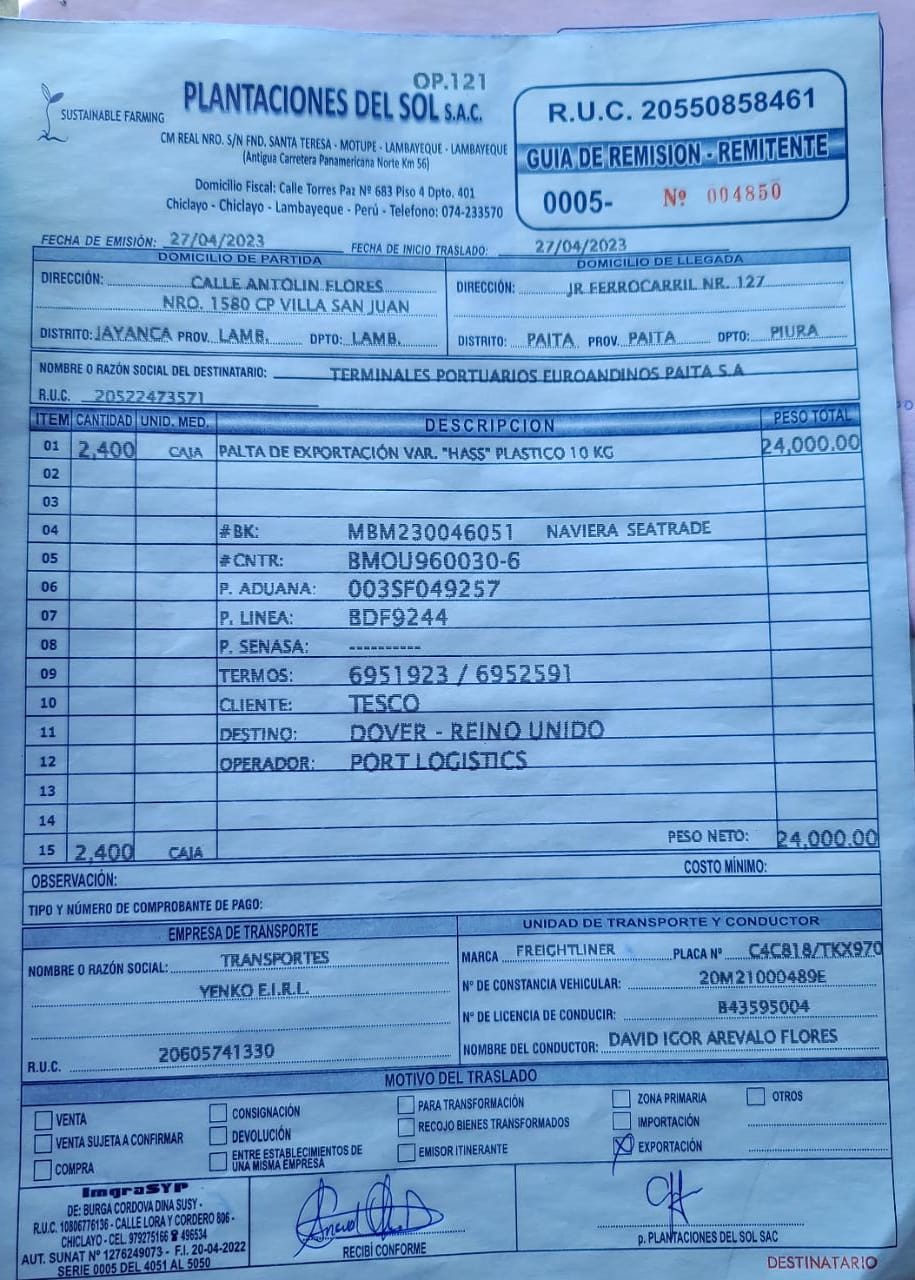 OP.121
SUSTAINABLE FARMING
PLANTACIONES DEL SOL S.A.C.
CM REAL NRO. S/N FND. SANTA TERESA - MOTUPE - LAMBAYEQUE - LAMBAYEQUE
(Antigua Carretera Panamericana Norte Km 56)
Domicilio Fiscal: Calle Torres Paz Nº 683 Piso 4 Dpto. 401
Chiclayo - Chiclayo - Lambayeque - Perú - Telefono: 074-233570
R.U.C. 20550858461
GUIA DE REMISION - REMITENTE
0005- Nº 004850
FECHA DE EMISIÓN: 27/04/2023 FECHA DE INICIO TRASLADO: 27/04/2023
DOMICILIO DE PARTIDA
DIRECCIÓN: CALLE ANTOLIN FLORES
NRO. 1580 CP VILLA SAN JUAN
DISTRITO: JAYANCA PROV. LAMB. DPTO: LAMB.
DOMICILIO DE LLEGADA
DIRECCIÓN: JR FERROCARRIL NR. 127
DISTRITO: PAITA PROV. PAITA DPTO: PIURA
NOMBRE O RAZÓN SOCIAL DEL DESTINATARIO: TERMINALES PORTUARIOS EUROANDINOS PAITA S.A
R.U.C. 20522473571
ITEM CANTIDAD UNID. MED. DESCRIPCION PESO TOTAL
01 2,400 CAJA PALTA DE EXPORTACIÓN VAR. "HASS" PLASTICO 10 KG 24,000.00
02
03
04 #BK: MBM230046051 NAVIERA SEATRADE
05 #CNTR: BMOU960030-6
06 P. ADUANA: 003SF049257
07 P. LINEA: BDF9244
08 P. SENASA: ----------
09 TERMOS: 6951923 / 6952591
10 CLIENTE: TESCO
11 DESTINO: DOVER - REINO UNIDO
12 OPERADOR: PORT LOGISTICS
13
14
15 2,400 CAJA PESO NETO: 24,000.00
OBSERVACIÓN: COSTO MÍNIMO:
TIPO Y NÚMERO DE COMPROBANTE DE PAGO:
EMPRESA DE TRANSPORTE
NOMBRE O RAZÓN SOCIAL: TRANSPORTES
YENKO E.I.R.L.
R.U.C. 20605741330
UNIDAD DE TRANSPORTE Y CONDUCTOR
MARCA FREIGHTLINER PLACA Nº C4C818/TKX970
Nº DE CONSTANCIA VEHICULAR: 20M21000489E
Nº DE LICENCIA DE CONDUCIR: B43595004
NOMBRE DEL CONDUCTOR: DAVID IGOR AREVALO FLORES
MOTIVO DEL TRASLADO
VENTA
VENTA SUJETA A CONFIRMAR
COMPRA
CONSIGNACIÓN
DEVOLUCIÓN
ENTRE ESTABLECIMIENTOS DE
UNA MISMA EMPRESA
PARA TRANSFORMACIÓN
RECOJO BIENES TRANSFORMADOS
EMISOR ITINERANTE
ZONA PRIMARIA
IMPORTACIÓN
X EXPORTACIÓN
OTROS
ImgraSYP
DE: BURGA CORDOVA DINA SUSY -
R.U.C. 10806776136 - CALLE LORA Y CORDERO 806 -
CHICLAYO - CEL. 979275166 ☎ 496534
AUT. SUNAT Nº 1276249073 - F.I. 20-04-2022
SERIE 0005 DEL 4051 AL 5050
RECIBÍ CONFORME
p. PLANTACIONES DEL SOL SAC
DESTINATARIO